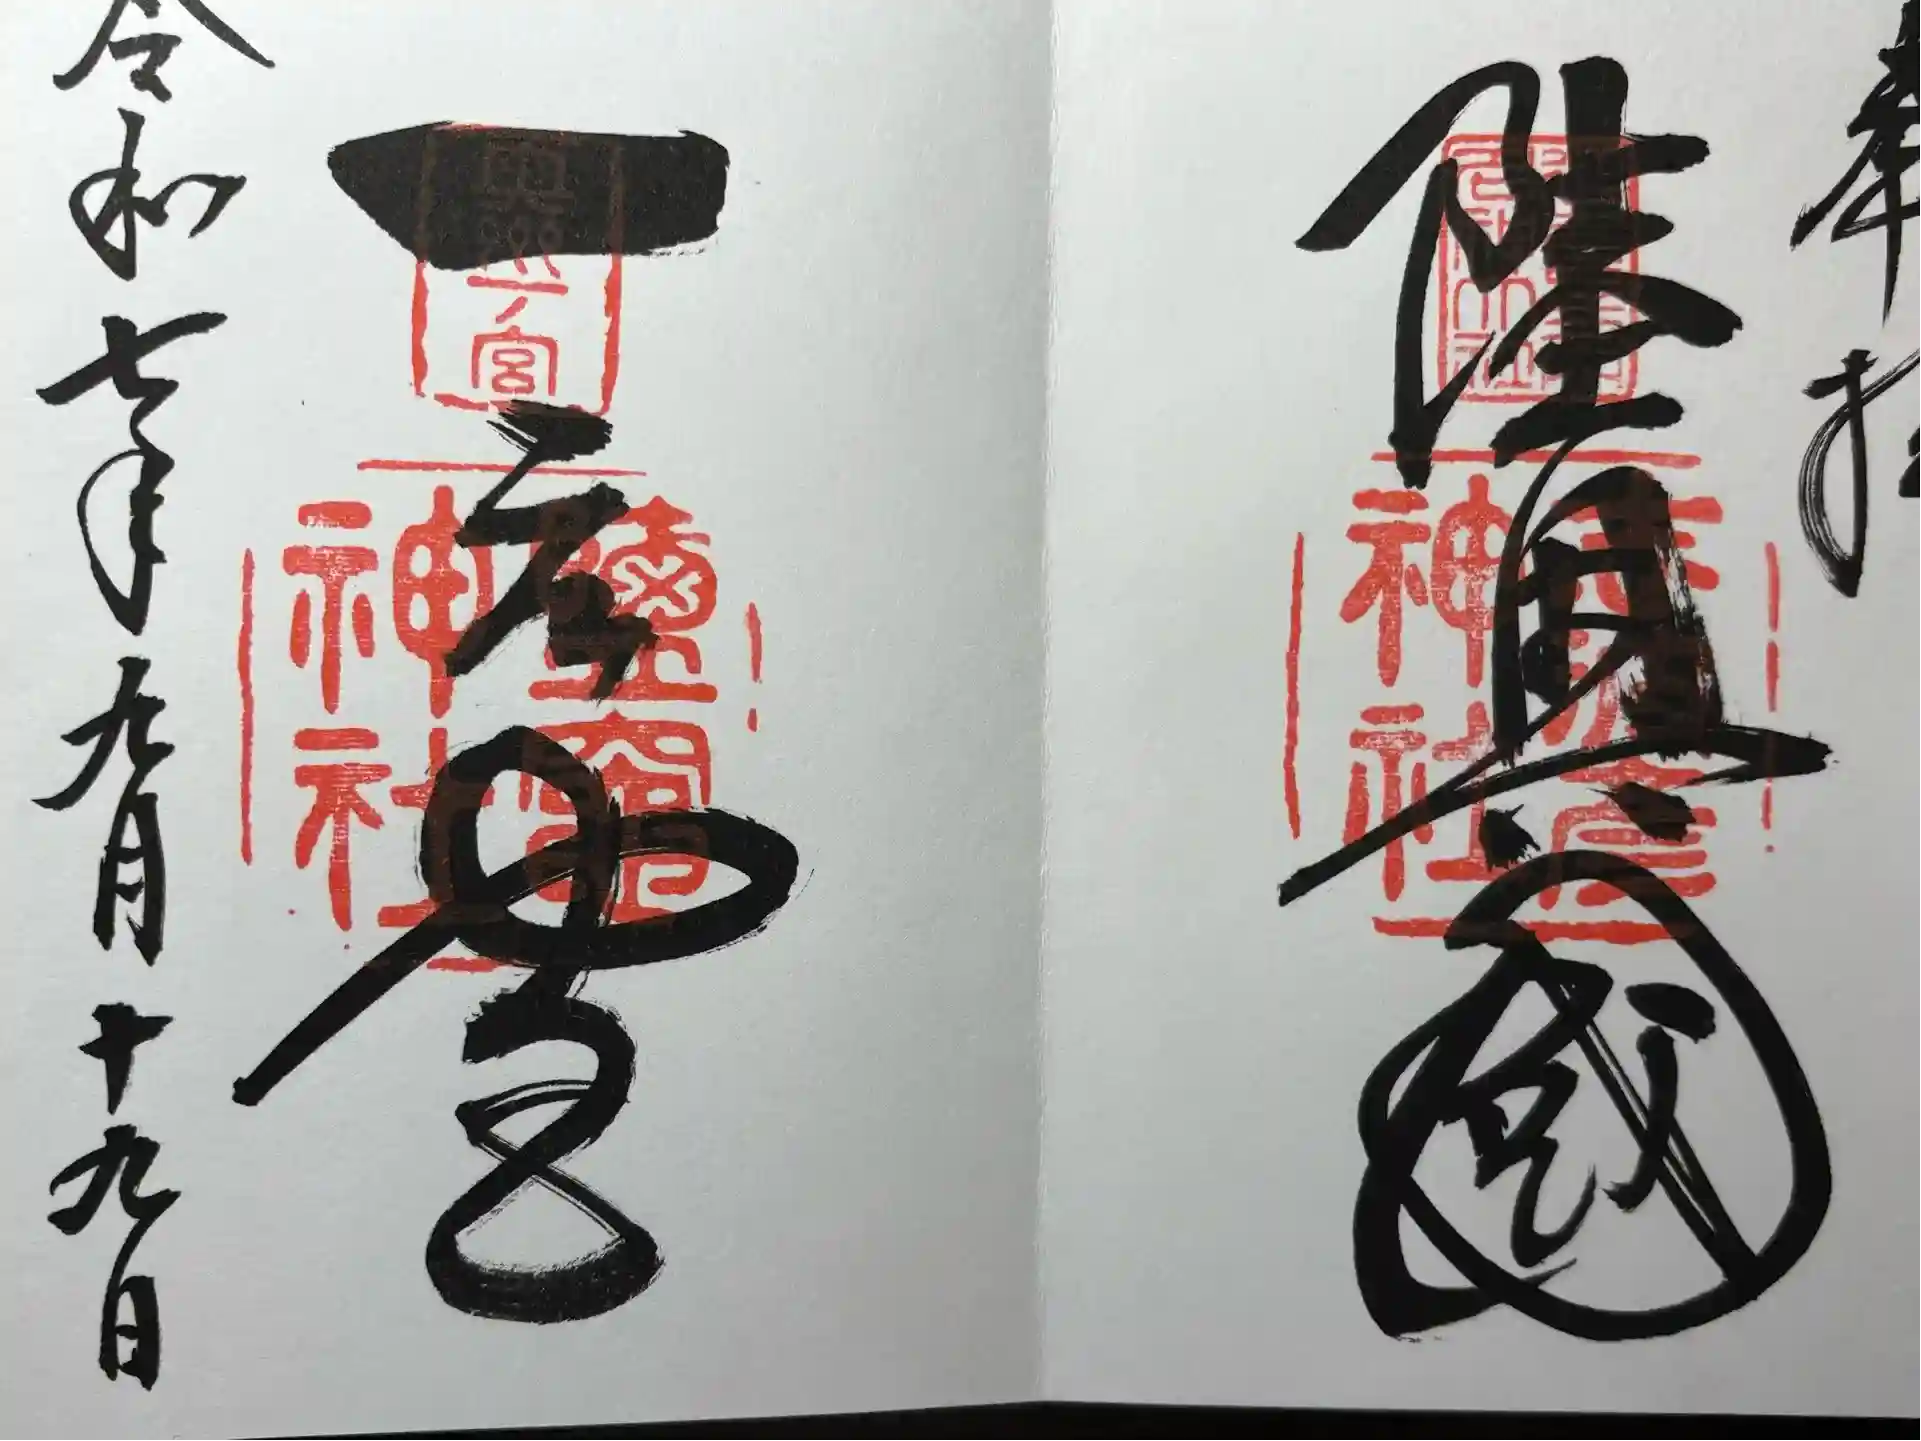 奉拝
陸奥國
志波彦
神社
一之宮
奥州一ノ宮
鹽竈
神社
令和七年九月十九日